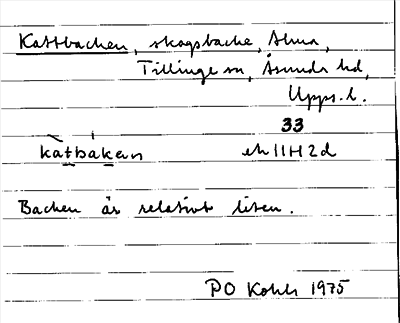 Kattbacken, skogsbacke, Älma,
Tillinge sn, Åsunda hd,
Upps. l.
33
kàtbáken ek 11H2d
Backen är relativt liten.
PO Kohls 1975